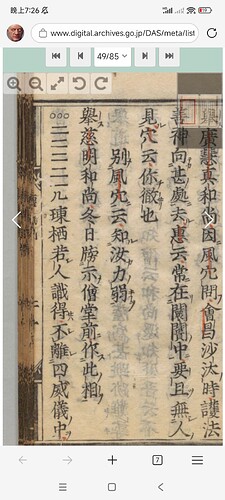 晚上7:26
www.digital.archives.go.jp/DAS/meta/list
49/85
舉廣慧真和尚因風穴問會昌沙汰時護法
善神向甚處去慧云常在闤闠中要且無人
見穴云你徹也
別風穴云知汝力弱
舉慈明和尚冬日牓示僧堂前作此相
若人識得不離四威儀中
7